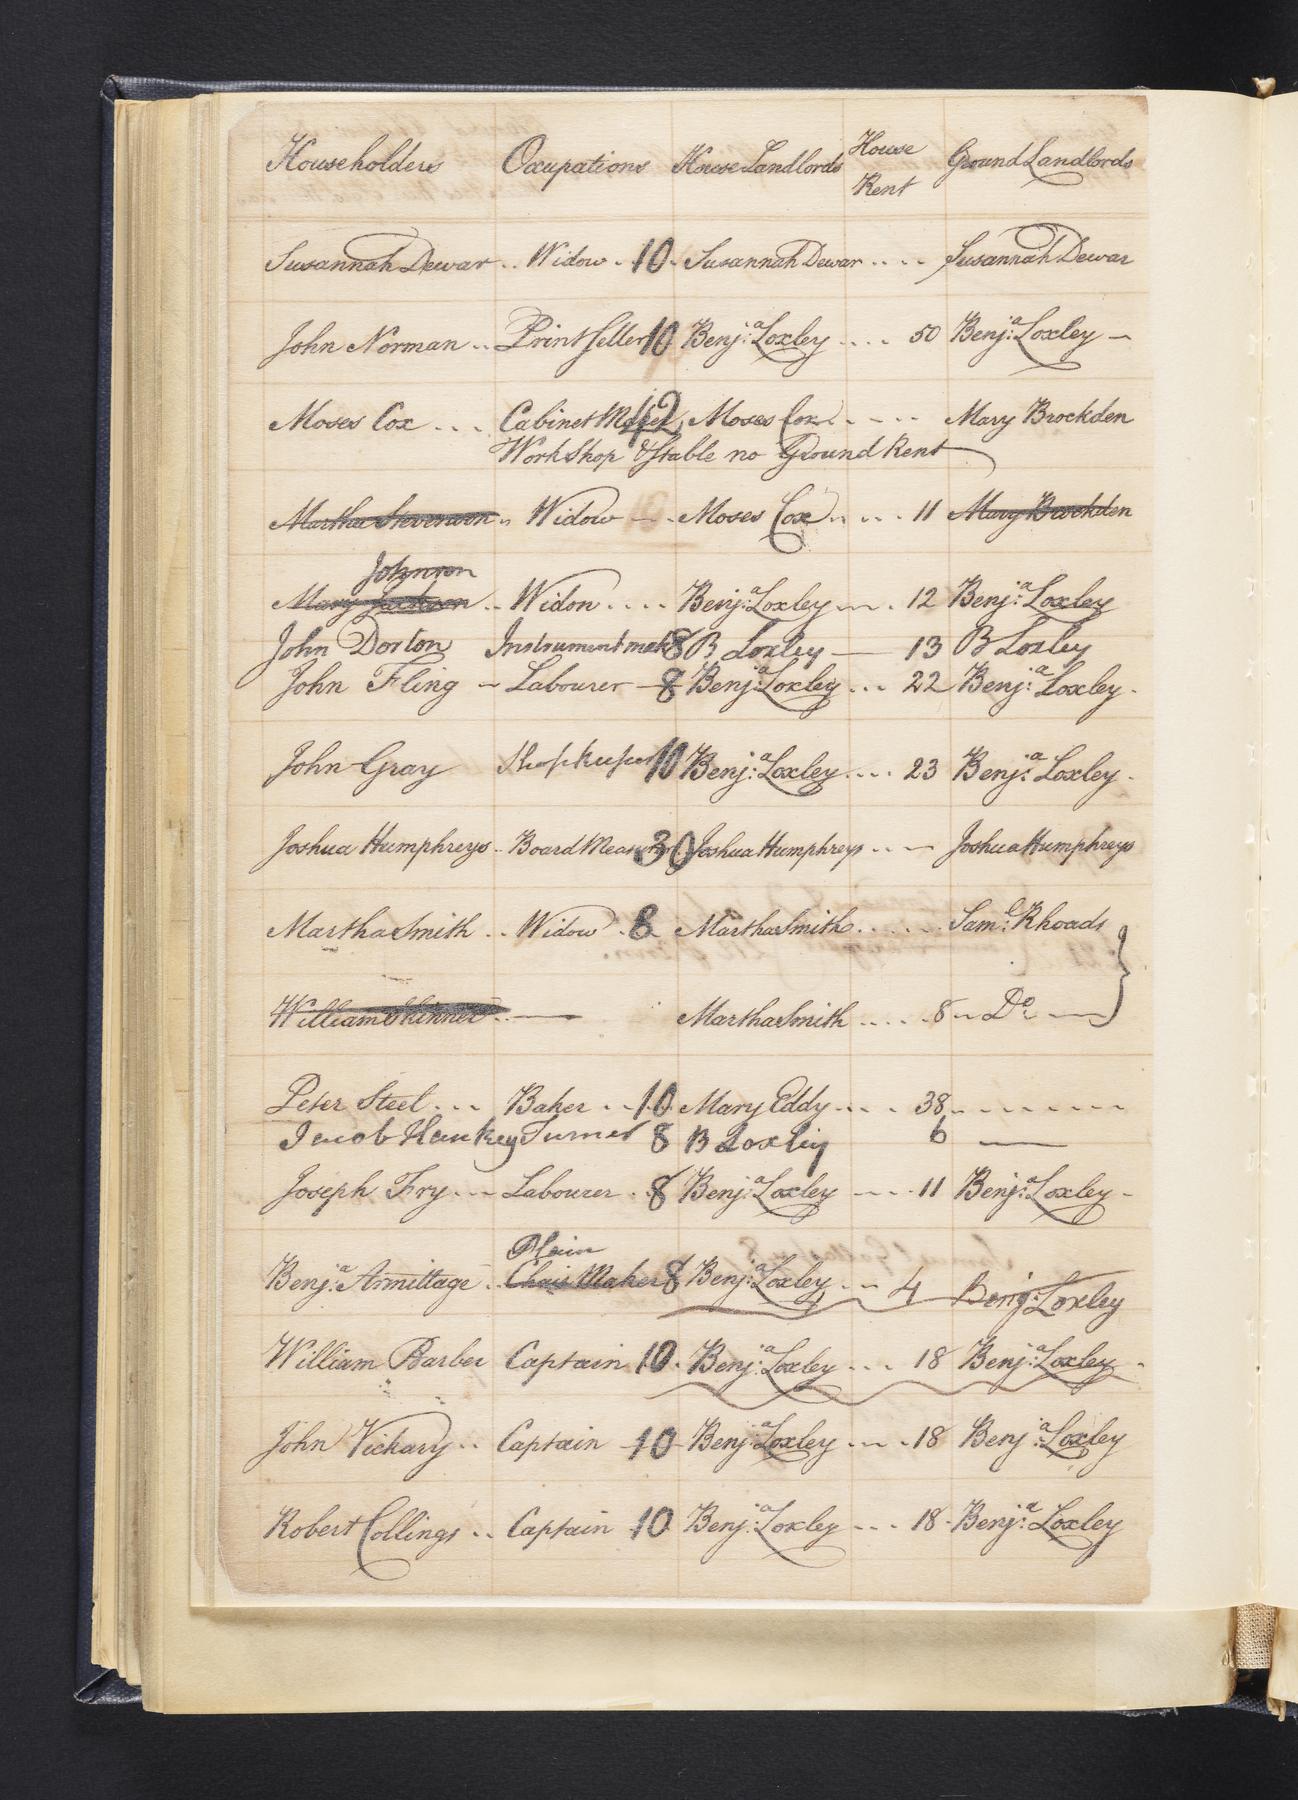 Householders Occupations House Landlords House Rent Ground Landlords
Susannah Dewar .. Widow . 10 . Susannah Dewar .... Susannah Dewar
John Norman .. Print Seller 10 Benj:a Loxley .... 50 Benj:a Loxley —
Moses Cox ... Cabinet Maker 42 Moses Cox .. --- Mary Brockden
Work Shop & Stable no Ground Rent
Martha Stevenson .. Widow --- Moses Cox .. .. 11 Mary Brockden
Johnson
Mary Jackson .. Widow .... Benj:a Loxley ... 12 Benj:a Loxley
John Dorton Instrument maker 8 B Loxley — 13 B Loxley
John Fling - Labourer - 8 Benj:a Loxley ... 22 Benj:a Loxley -
John Gray Shopkeeper 10 Benj:a Loxley .... 23 Benj:a Loxley -
Joshua Humphreys .. Board Measurer 30 Joshua Humphreys .. — Joshua Humphreys
Martha Smith .. Widow . 8 Martha Smith ...... Sam:l Rhoads
William Skinner .. — Martha Smith .... 8 .. Do —
Peter Steel ... Baker ... 10 Mary Eddy .... 38 ........
Jacob Hankey Turner 8 B Loxley 6 —
Joseph Fry ... Labourer .. 8 Benj:a Loxley ---- 11 Benj:a Loxley -
Plain
Benj:a Armittage .. Chair Maker 8 Benj:a Loxley .. — 4 Benj: Loxley
William Barber Captain 10 . Benj:a Loxley ... 18 Benj:a Loxley -
John Vickary .. Captain 10 - Benj:a Loxley ... 18 Benj:a Loxley
Robert Collings .. Captain 10 Benj:a Loxley ... 18 - Benj:a Loxley